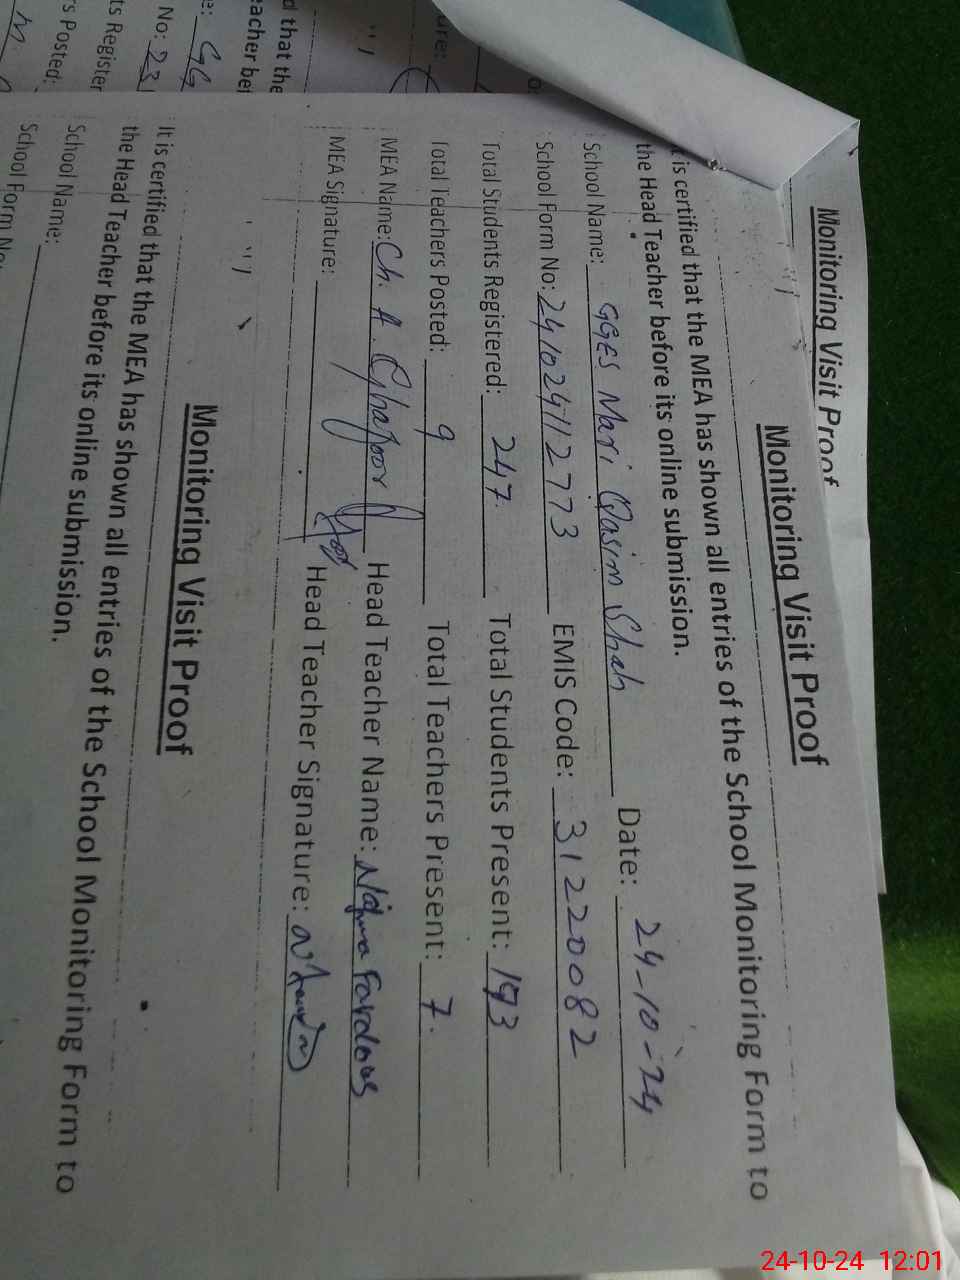 Monitoring Visit Proof
Monitoring Visit Proof
It is certified that the MEA has shown all entries of the School Monitoring Form to
the Head Teacher before its online submission.
School Name: GGES Mari Qasim Shah Date: 24-10-24
School Form No: 241024112773 EMIS Code: 31220082
Total Students Registered: 247 Total Students Present: 193
Total Teachers Posted: 9 Total Teachers Present: 7
MEA Name: Ch. A. Ghafoor Head Teacher Name: Najma Fardous
MEA Signature: Head Teacher Signature:
Monitoring Visit Proof
It is certified that the MEA has shown all entries of the School Monitoring Form to
the Head Teacher before its online submission.
School Name:
School Form No:
d that the
eacher bef
e: GG
No: 23
ts Register
rs Posted:
ure:
24-10-24 12:01